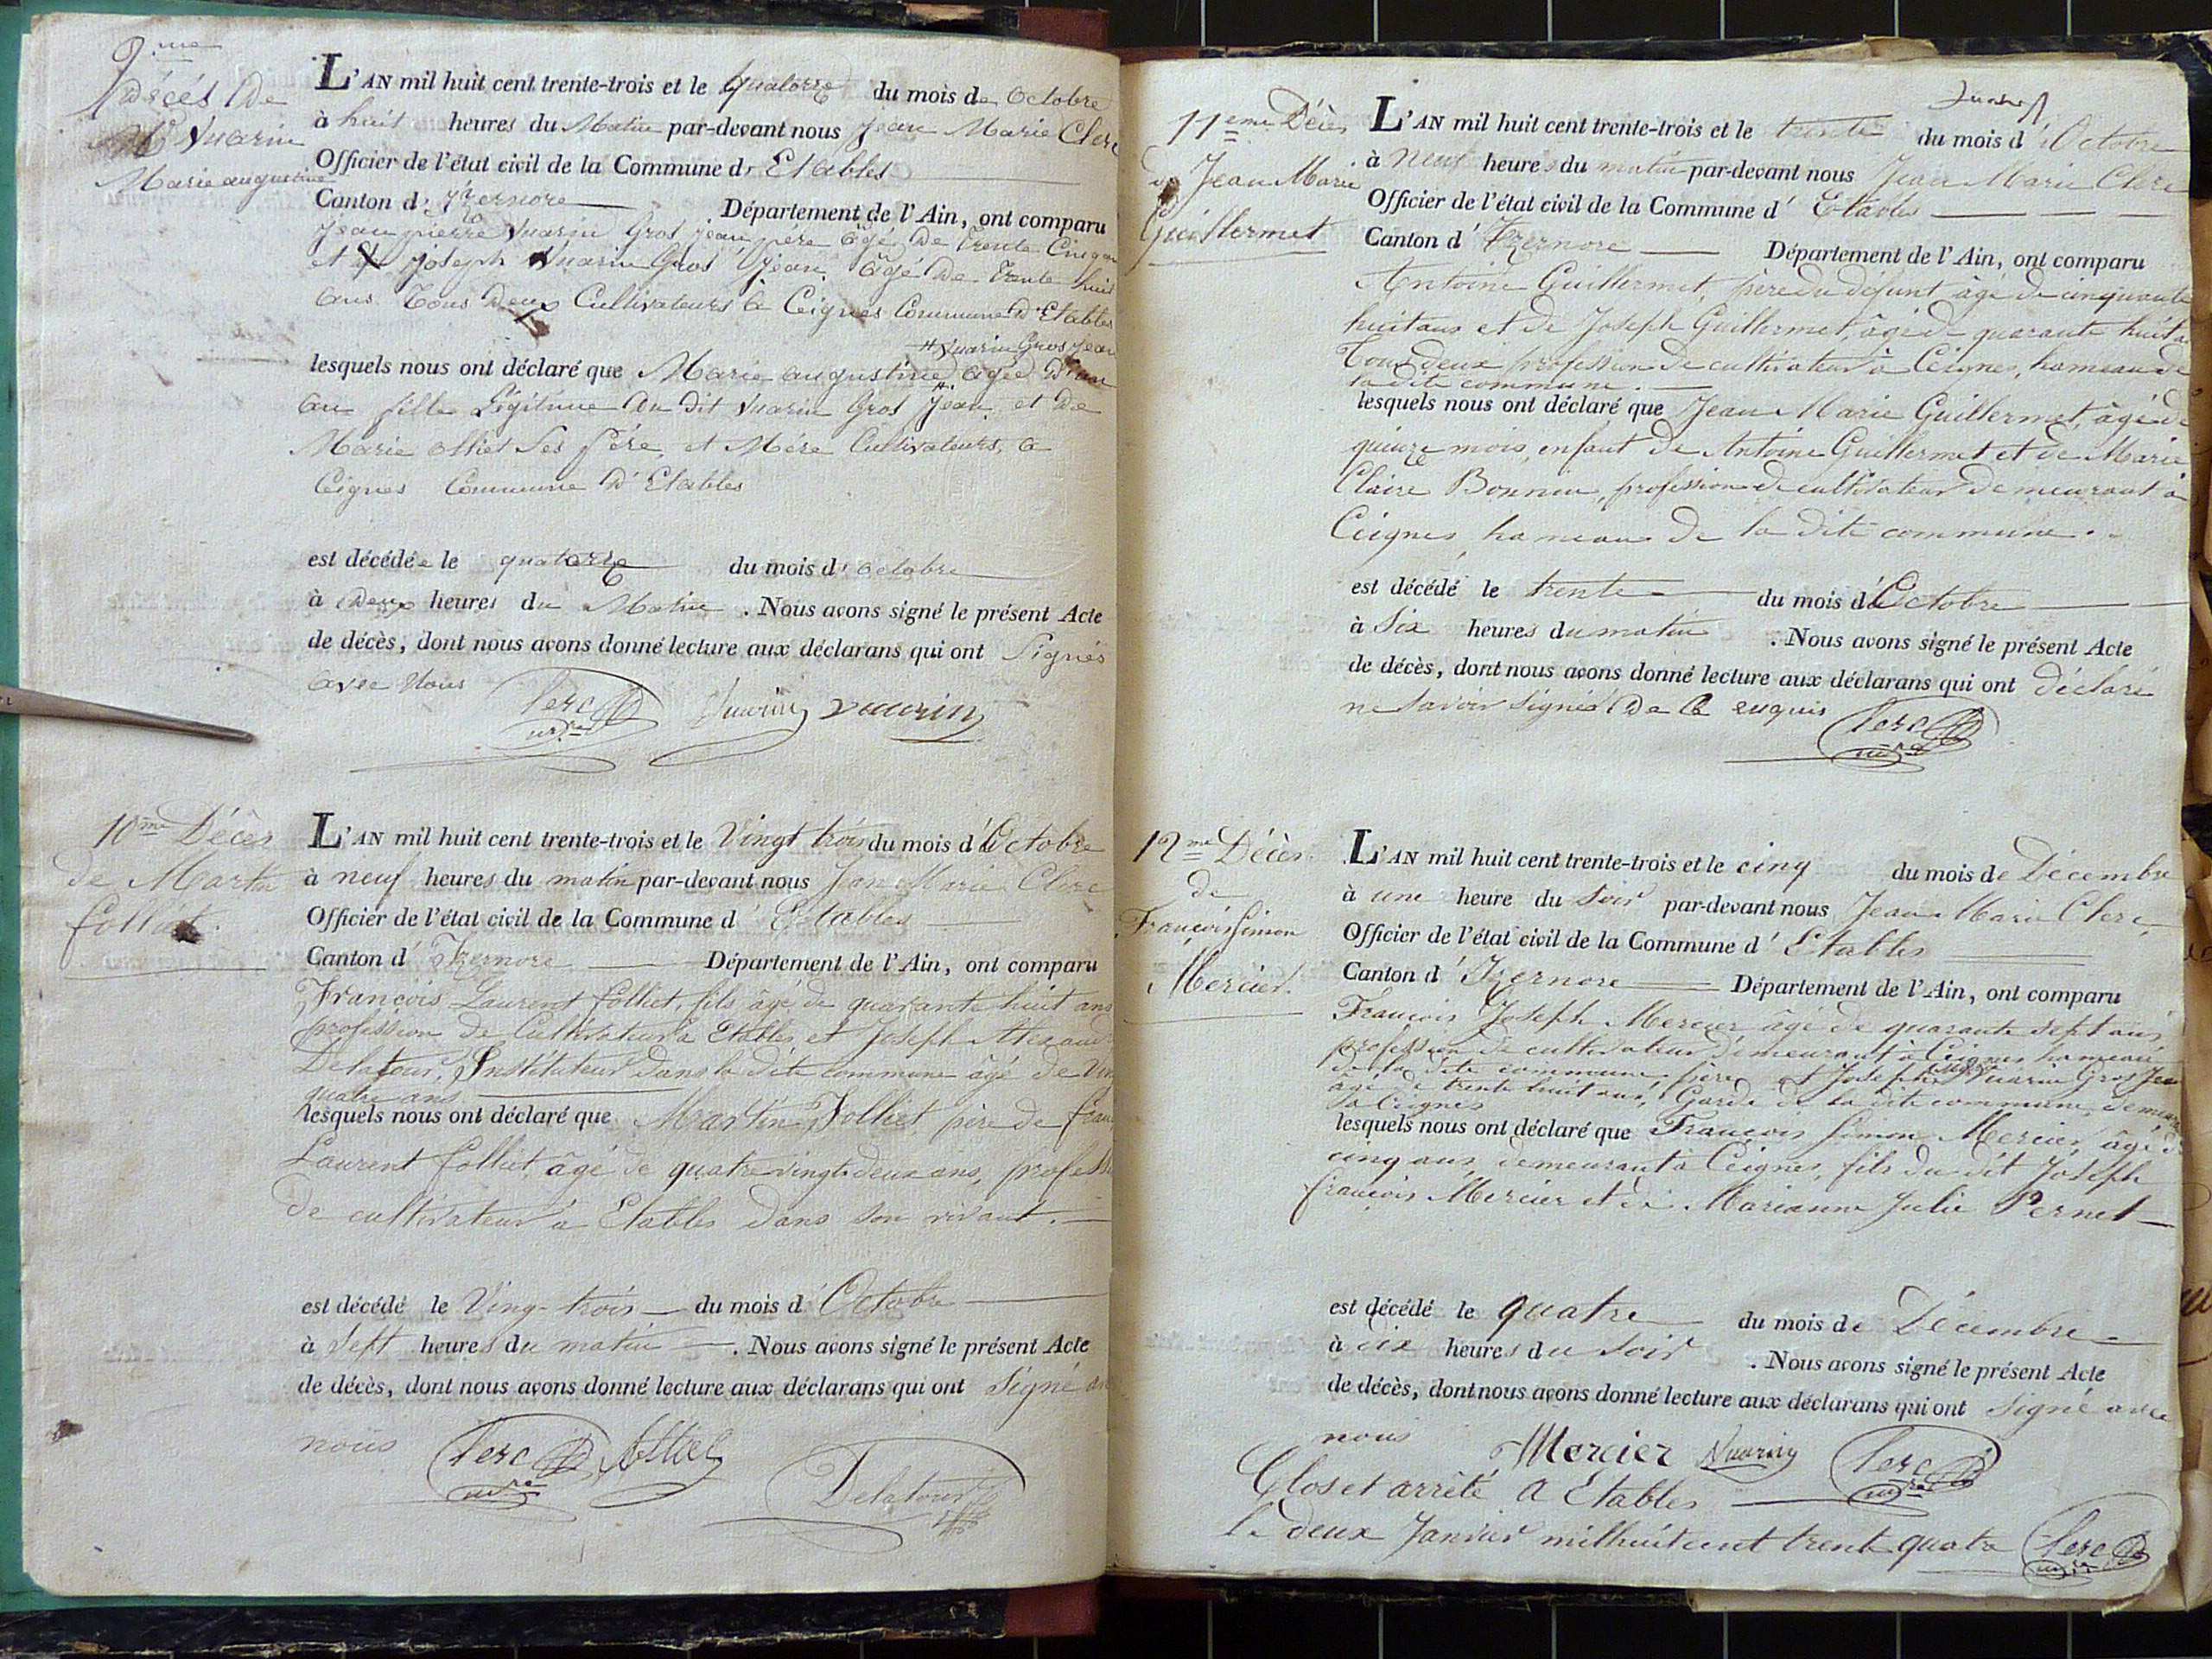 9.me
Décés De
Vuarin
Marie augustine
L'AN mil huit cent trente-trois et le quatorze du mois de octobre
à huit heures du Matin par-devant nous Jean Marie Clerc
Officier de l'état civil de la Commune d' Etables
Canton d' Izernore Département de l'Ain, ont comparu
Jean pierre Vuarin Gros Jean père âgé De Trente Cinq an
et Joseph Vuarin Gros Jean âgé De Trente huit
ans Tous Deux Cultivateurs à Ceignes Commune D'Etables
# Vuarin Gros Jean
lesquels nous ont déclaré que Marie augustine # agée D'un
an fille Légitime du dit Vuarin Gros Jean et De
Marie olliet Ses Père et Mére Cultivateurs, a
Ceignes Commune D'Etables
est décédée le quatorze du mois d' octobre
à Deux heures du Matin . Nous avons signé le présent Acte
de décès, dont nous avons donné lecture aux déclarans qui ont Signés
avec Nous
Clerc Vuarin vuarin
mre
10me Décès
de Martin
folliet.
L'AN mil huit cent trente-trois et le Vingt trois du mois d'Octobre
à neuf heures du matin par-devant nous Jean Marie Clerc
Officier de l'état civil de la Commune d' Etables
Canton d' Izernore Département de l'Ain, ont comparu
François Laurent folliet, fils âgé de quarante huit ans
profession de Cultivateur à Etables et Joseph Alexand
Delatour, Instituteur dans la dite commune âgé de Vin
quatre ans
lesquels nous ont déclaré que Martin Folliet père de fran
Laurent folliet âgé de quatre vingt deux ans, profess
de cultivateur à Etables dans son vivant.
est décédé le Ving-trois du mois d' Octobre
à Sept heures du matin . Nous avons signé le présent Acte
de décès, dont nous avons donné lecture aux déclarans qui ont Signé av
nous
Clerc
mre
Delatour
11eme Décès
de Jean Marie
Guillermet
L'AN mil huit cent trente-trois et le trente du mois d' Octobre
à Neuf heures du matin par-devant nous Jean Marie Clerc
Officier de l'état civil de la Commune d' Etables
Canton d' Izernore Département de l'Ain, ont comparu
Antoine Guillermet, père du défunt âgé de cinquante
huit ans et de Joseph Guillermet, âgé de quarante huit a
Tous deux profession de cultivateur à Ceignes, hameau de
la dite commune.
lesquels nous ont déclaré que Jean Marie Guillermet, âgé de
quinze mois, enfant de Antoine Guillermet et de Marie
Claire Bonnin, profession de cultivateur demeurant à
Ceignes, hameau de la dite commune.
est décédé le trente du mois d'Octobre
à Six heures du matin . Nous avons signé le présent Acte
de décès, dont nous avons donné lecture aux déclarans qui ont déclaré
ne savoir signés De Ce enquis
Clerc
mre
12me Décès
de
François Simon
Mercier.
L'AN mil huit cent trente-trois et le cinq du mois de Décembre
à une heure du Soir par-devant nous Jean Marie Clerc
Officier de l'état civil de la Commune d' Etables
Canton d' Izernore Département de l'Ain, ont comparu
François Joseph Mercier âgé de quarante sept ans,
profession de cultivateur demeurant à Ceignes hameau
de la dite commune père et Joseph Vuarin Gros Jean
âgé de trente huit ans, Garde de la dite commune, demeur
à Ceignes
lesquels nous ont déclaré que François Simon Mercier âgé de
cinq ans, demeurant à Ceignes, fils du dit Joseph
françois Mercier et de Marianne Julie Pernet
est décédé le quatre du mois de Décembre
à dix heures du Soir . Nous avons signé le présent Acte
de décès, dont nous avons donné lecture aux déclarans qui ont signé avec
nous
Mercier Vuarin Clerc
mre
Clos et arrêté A Etables
le deux Janvier mil huit cent trente quatre Clerc
mre